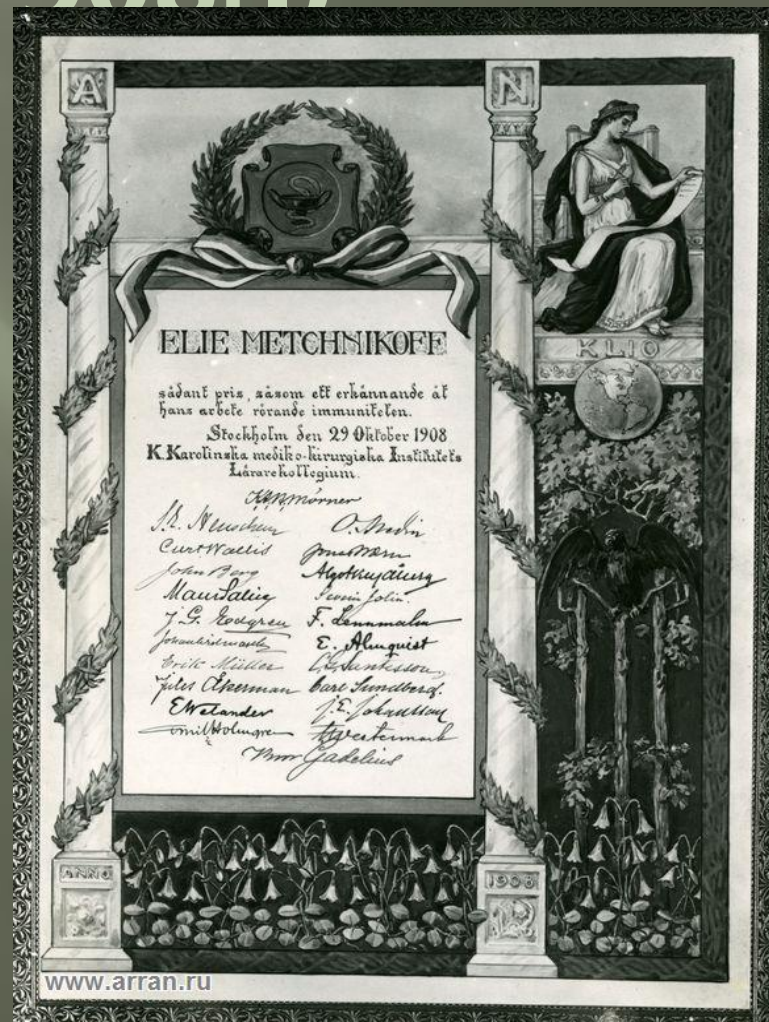 A N
KLIO
ELIE METCHNIKOFF
sådant pris, såsom ett erkännande åt
hans arbete rörande immuniteten.
Stockholm den 29 Oktober 1908
K. Karolinska mediko-kirurgiska Institutets
Lärarekollegium.
K.A.H. Mörner
O. Medin
Curt Wallis
John Berg
J. G. Edgren F. Lennmalm
E. Almquist
Erik Müller C. G. Santesson
Jules Åkerman Carl Sundberg.
E Welander J. E. Johansson
Emil Holmgren Westermark
Gadelius
ANNO 1908
www.arran.ru